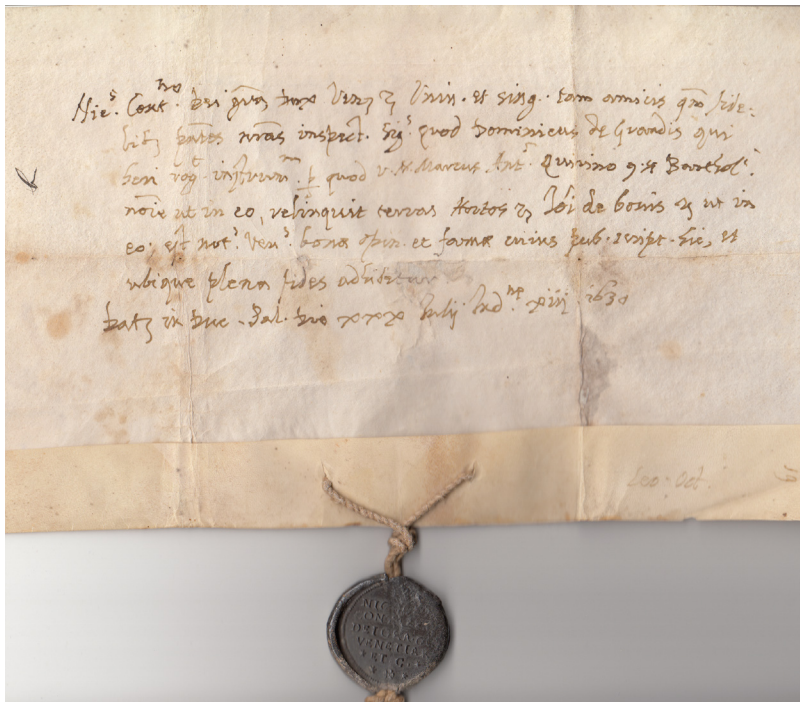 Nic.s Cont.no Dei grã Dux Venz z Univ. et sing. tam amicis q̃ fide-
litz pãtes nrãs inspect. Sig.t quod Dominicus de Grandis qui
rog.t instrum.m quod V. N. Marcus Ant. Quirino q. Barthol.i
nõie ut in eo, relinquit terras de bonis ut in
eo; est not.s Ven.s bonæ opin. et famæ cuius pub. script. hic, et
ubique plena fides adhibetur
Datz in Duc. Pal. Die xxx Julij Ind.ne xiij 1630
Leo. Oct.
NIC
DEI GRA
VENETIA
ETC